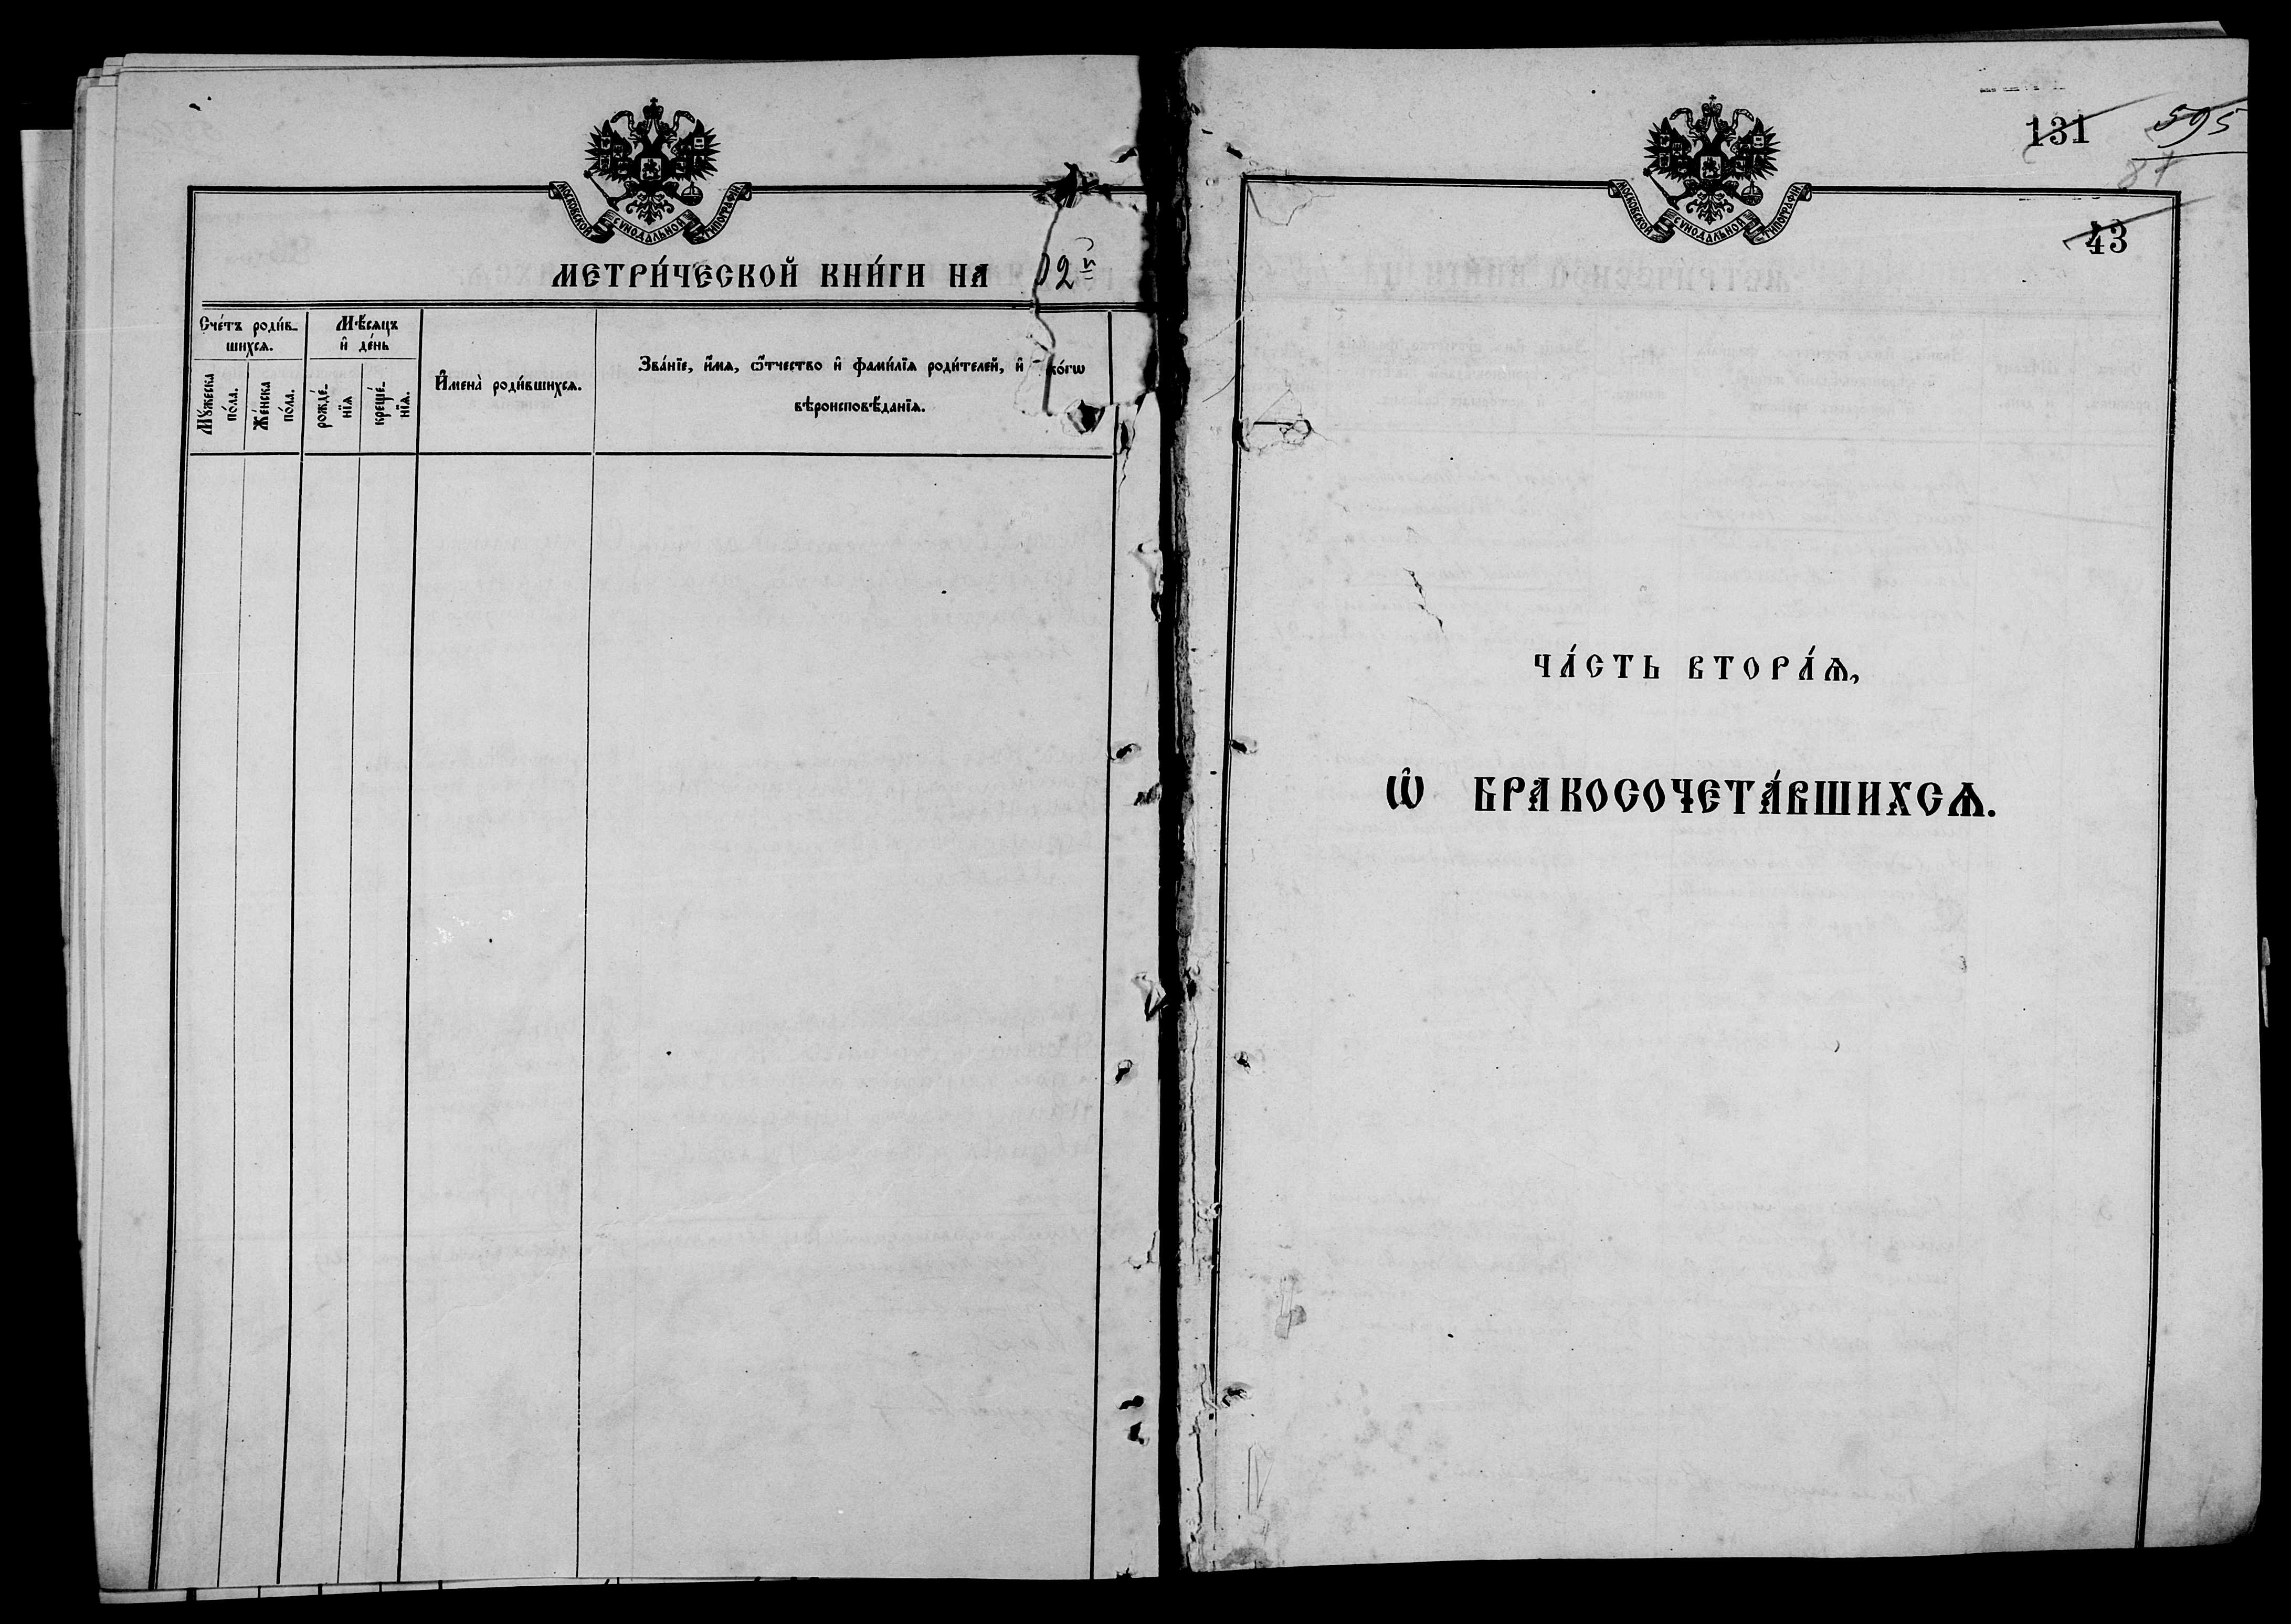 МОСКОВСКОЙ СУНОДАЛЬНОЙ ТИПОГРАФІИ
МЕТРИ́ЧЕСКОЙ КНИ́ГИ НА
Сче́тъ роди́в-
шихсѧ.
Мѣ́сѧцъ
и҆ де́нь
И҆мена̀ роди́вшихсѧ.
Зва́нїе, и҆́мѧ, ѻ҆́тчество и҆ фами́лїѧ роди́телей, и҆ ко́гѡ
вѣроисповѣ́данїѧ.
Мꙋ́жеска
по́ла.
Же́нска
по́ла.
рожде́-
нїѧ
креще́-
нїѧ.
МОСКОВСКОЙ СУНОДАЛЬНОЙ ТИПОГРАФІИ
131
595
87
43
ЧА́СТЬ ВТОРА́Ѧ,
Ѡ҆ БРАКОСОЧЕТА́ВШИХСѦ.